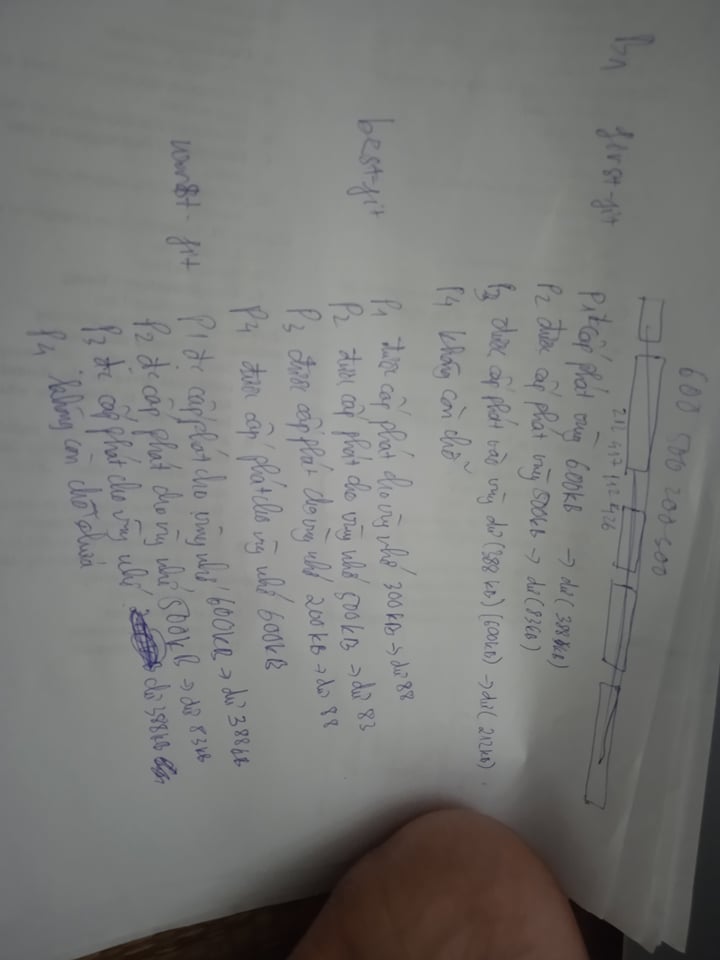 600 500 200 300
212 417 112 426
first-fit
P1 cấp phát vùng 600KB → dư (388KB)
P2 được cấp phát vùng 500KB → dư (83KB)
P3 được cấp phát vào vùng dư (388KB) (600KB) → dư (212KB).
P4 không còn chỗ
best-fit
P1 được cấp phát cho vùng nhớ 300KB → dư 88
P2 được cấp phát cho vùng nhớ 500KB → dư 83
P3 được cấp phát cho vùng nhớ 200KB → dư 88
P4 được cấp phát cho vùng nhớ 600KB
worst-fit
P1 đc cấp phát cho vùng nhớ 600KB → dư 388KB
P2 đc cấp phát cho vùng nhớ 500KB → dư 83KB
P3 đc cấp phát cho vùng nhớ dư 388KB
P4 không còn chỗ chứa